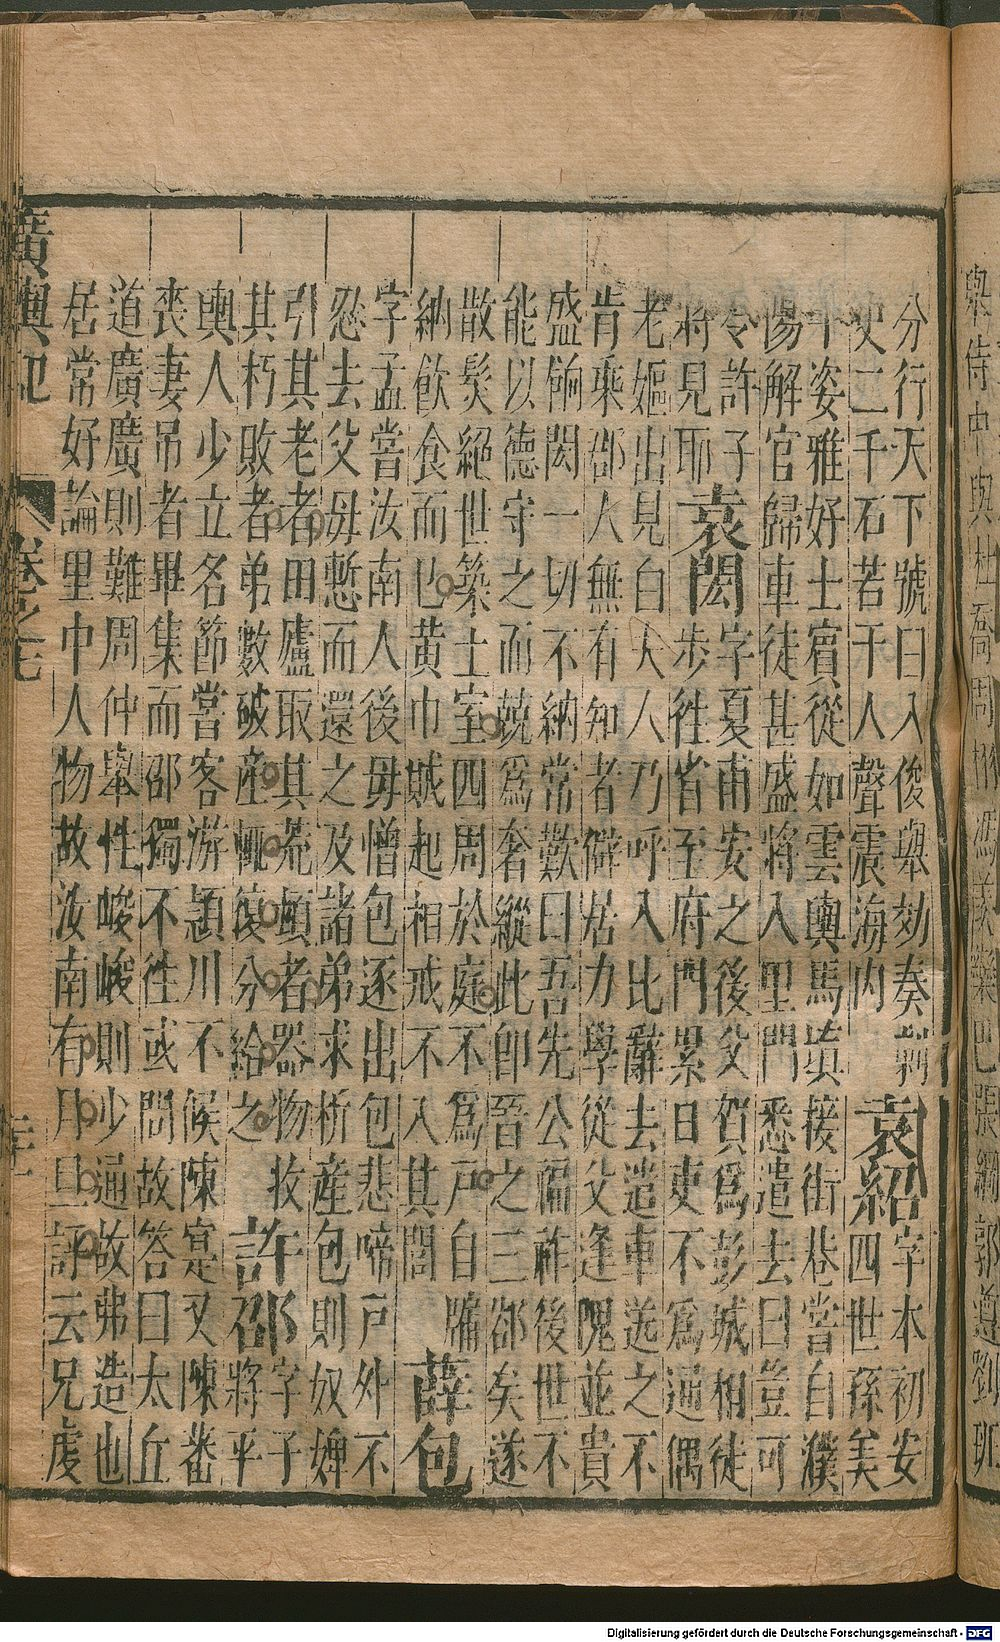 舉侍中與杜喬周栩馮羨欒巴張綱郭遵劉班
分行天下號曰八俊舉劾奏刺
史二千石若干人聲震海内
袁紹
字本初安
四世孫美
丰姿雅好士賓從如雲輿馬填接街巷嘗自濮
陽解官歸車徒甚盛將入里門悉遣去曰豈可
令許子
將見耶
袁閎
字夏甫安之後父賀爲彭城相徒
步徃省至府門累日吏不爲通偶
老嫗出見白大人人乃呼入比辭去遣車送之不
肯乘郡人無有知者僻居力學從父逢隗並貴
盛餉閎一切不納常歎曰吾先公福祚後世不
能以德守之而競爲奢縱此即晉之三郤矣遂
散髮絕世築土室四周於庭不爲戸自牖
納飲食而已黄巾賊起相戒不入其閭
薛包
字孟嘗汝南人後母憎包逐出包悲啼戸外不
忍去父母慙而還之及諸弟求析產包則奴婢
引其老者田廬取其荒頓者器物收
其朽敗者弟數破產輒復分給之
許邵
字子
將平
輿人少立名節嘗客游潁川不候陳寔又陳蕃
喪妻吊者畢集而邵獨不徃或問故答曰太丘
道廣廣則難周仲舉性峻峻則少通故弗造也
居常好論里中人物故汝南有月旦評云兄虔
廣輿記
卷之七
Digitalisierung gefördert durch die Deutsche Forschungsgemeinschaft - DFG